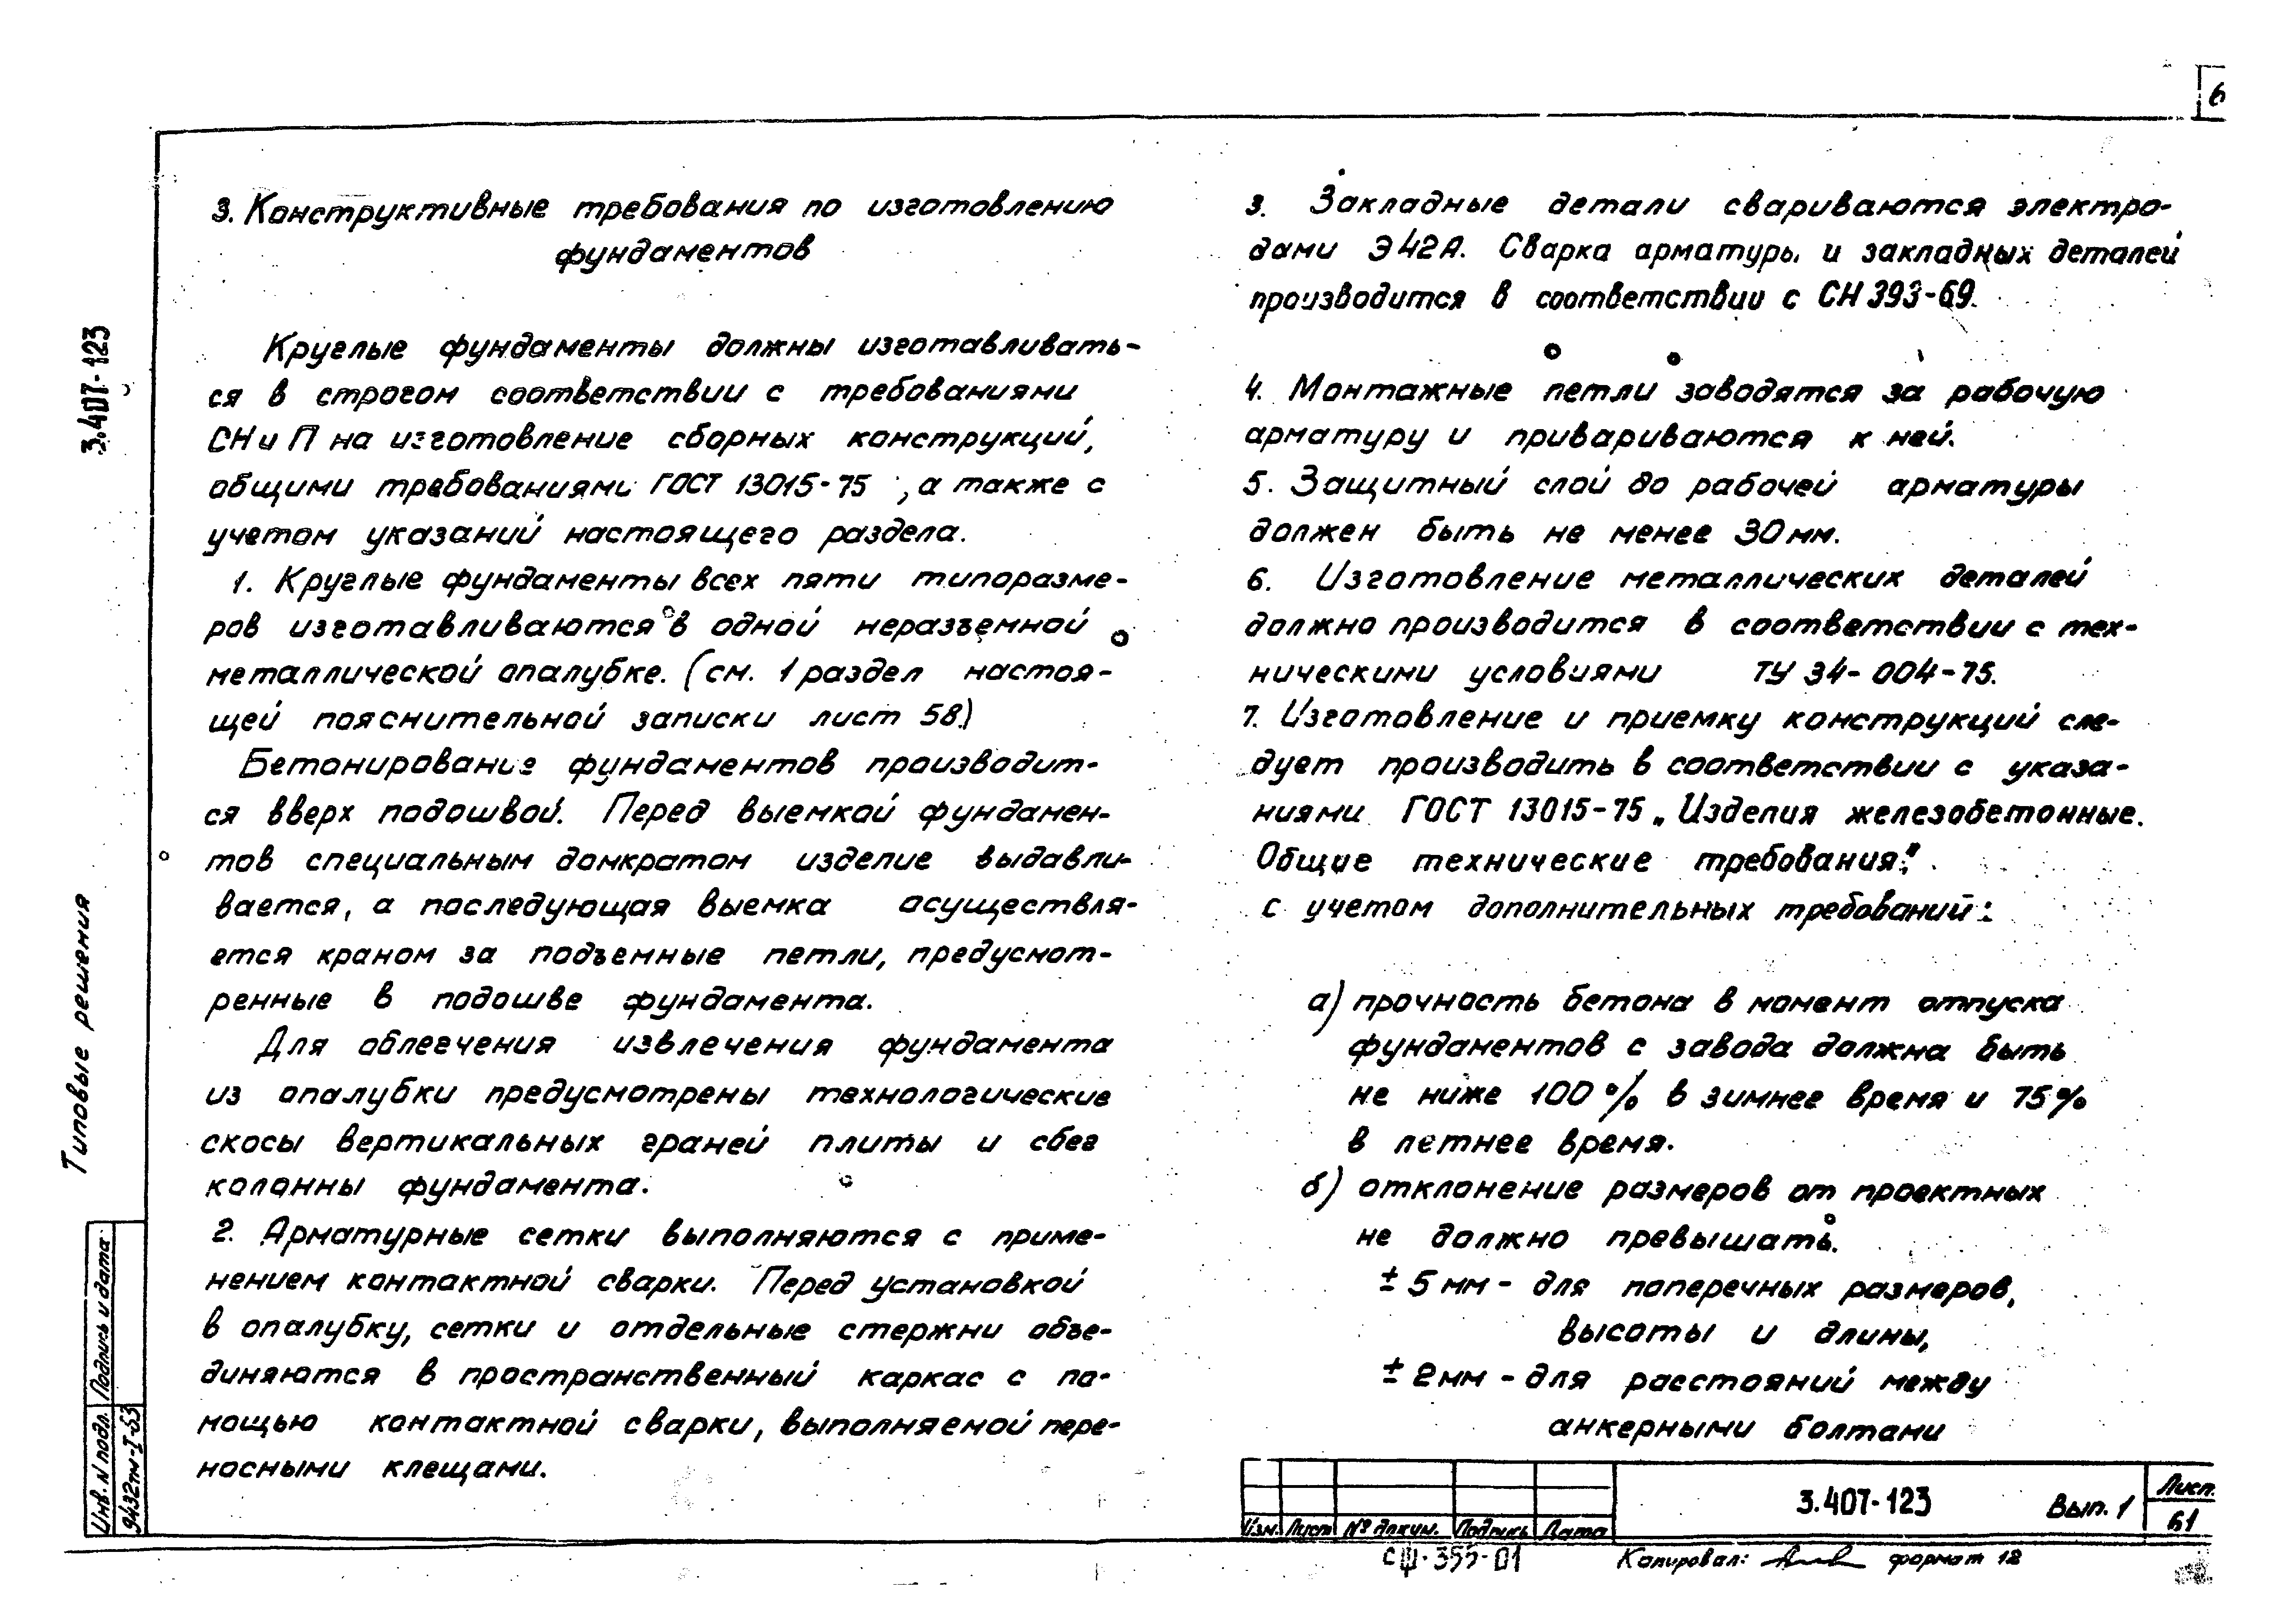 6
3. Конструктивные требования по изготовлению
фундаментов
Круглые фундаменты должны изготавливать-
ся в строгом соответствии с требованиями
СНиП на изготовление сборных конструкций,
общими требованиями ГОСТ 13015-75, а также с
учетом указаний настоящего раздела.
1. Круглые фундаменты всех пяти типоразме-
ров изготавливаются в одной неразъемной
металлической опалубке. (см. 1 раздел настоя-
щей пояснительной записки лист 58)
Бетонирование фундаментов производит-
ся вверх подошвой. Перед выемкой фундамен-
тов специальным домкратом изделие выдавли-
вается, а последующая выемка осуществля-
ется краном за подъемные петли, предусмот-
ренные в подошве фундамента.
Для облегчения извлечения фундамента
из опалубки предусмотрены технологические
скосы вертикальных граней плиты и сбег
колонны фундамента.
2. Арматурные сетки выполняются с приме-
нением контактной сварки. Перед установкой
в опалубку, сетки и отдельные стержни объе-
диняются в пространственный каркас с по-
мощью контактной сварки, выполняемой пере-
носными клещами.
3. Закладные детали свариваются электро-
дами Э42А. Сварка арматуры и закладных деталей
производится в соответствии с СН 393-69.
4. Монтажные петли заводятся за рабочую
арматуру и привариваются к ней.
5. Защитный слой до рабочей арматуры
должен быть не менее 30 мм.
6. Изготовление металлических деталей
должно производится в соответствии с тех-
ническими условиями ТУ 34-004-75.
7. Изготовление и приемку конструкций сле-
дует производить в соответствии с указа-
ниями ГОСТ 13015-75 „Изделия железобетонные.
Общие технические требования."
с учетом дополнительных требований:
а) прочность бетона в момент отпуска
фундаментов с завода должна быть
не ниже 100% в зимнее время и 75%
в летнее время.
б) отклонение размеров от проектных
не должно превышать.
± 5 мм - для поперечных размеров,
высоты и длины,
± 2 мм - для расстояний между
анкерными болтами
3.407-123
Типовые решения
Подпись и дата
Инв. N подл.
9432тм-I-63
Изм. Лист № докум. Подпись Дата
3.407-123 Вып. 1
Лист
61
СШ-355-01
Копировал: формат 12